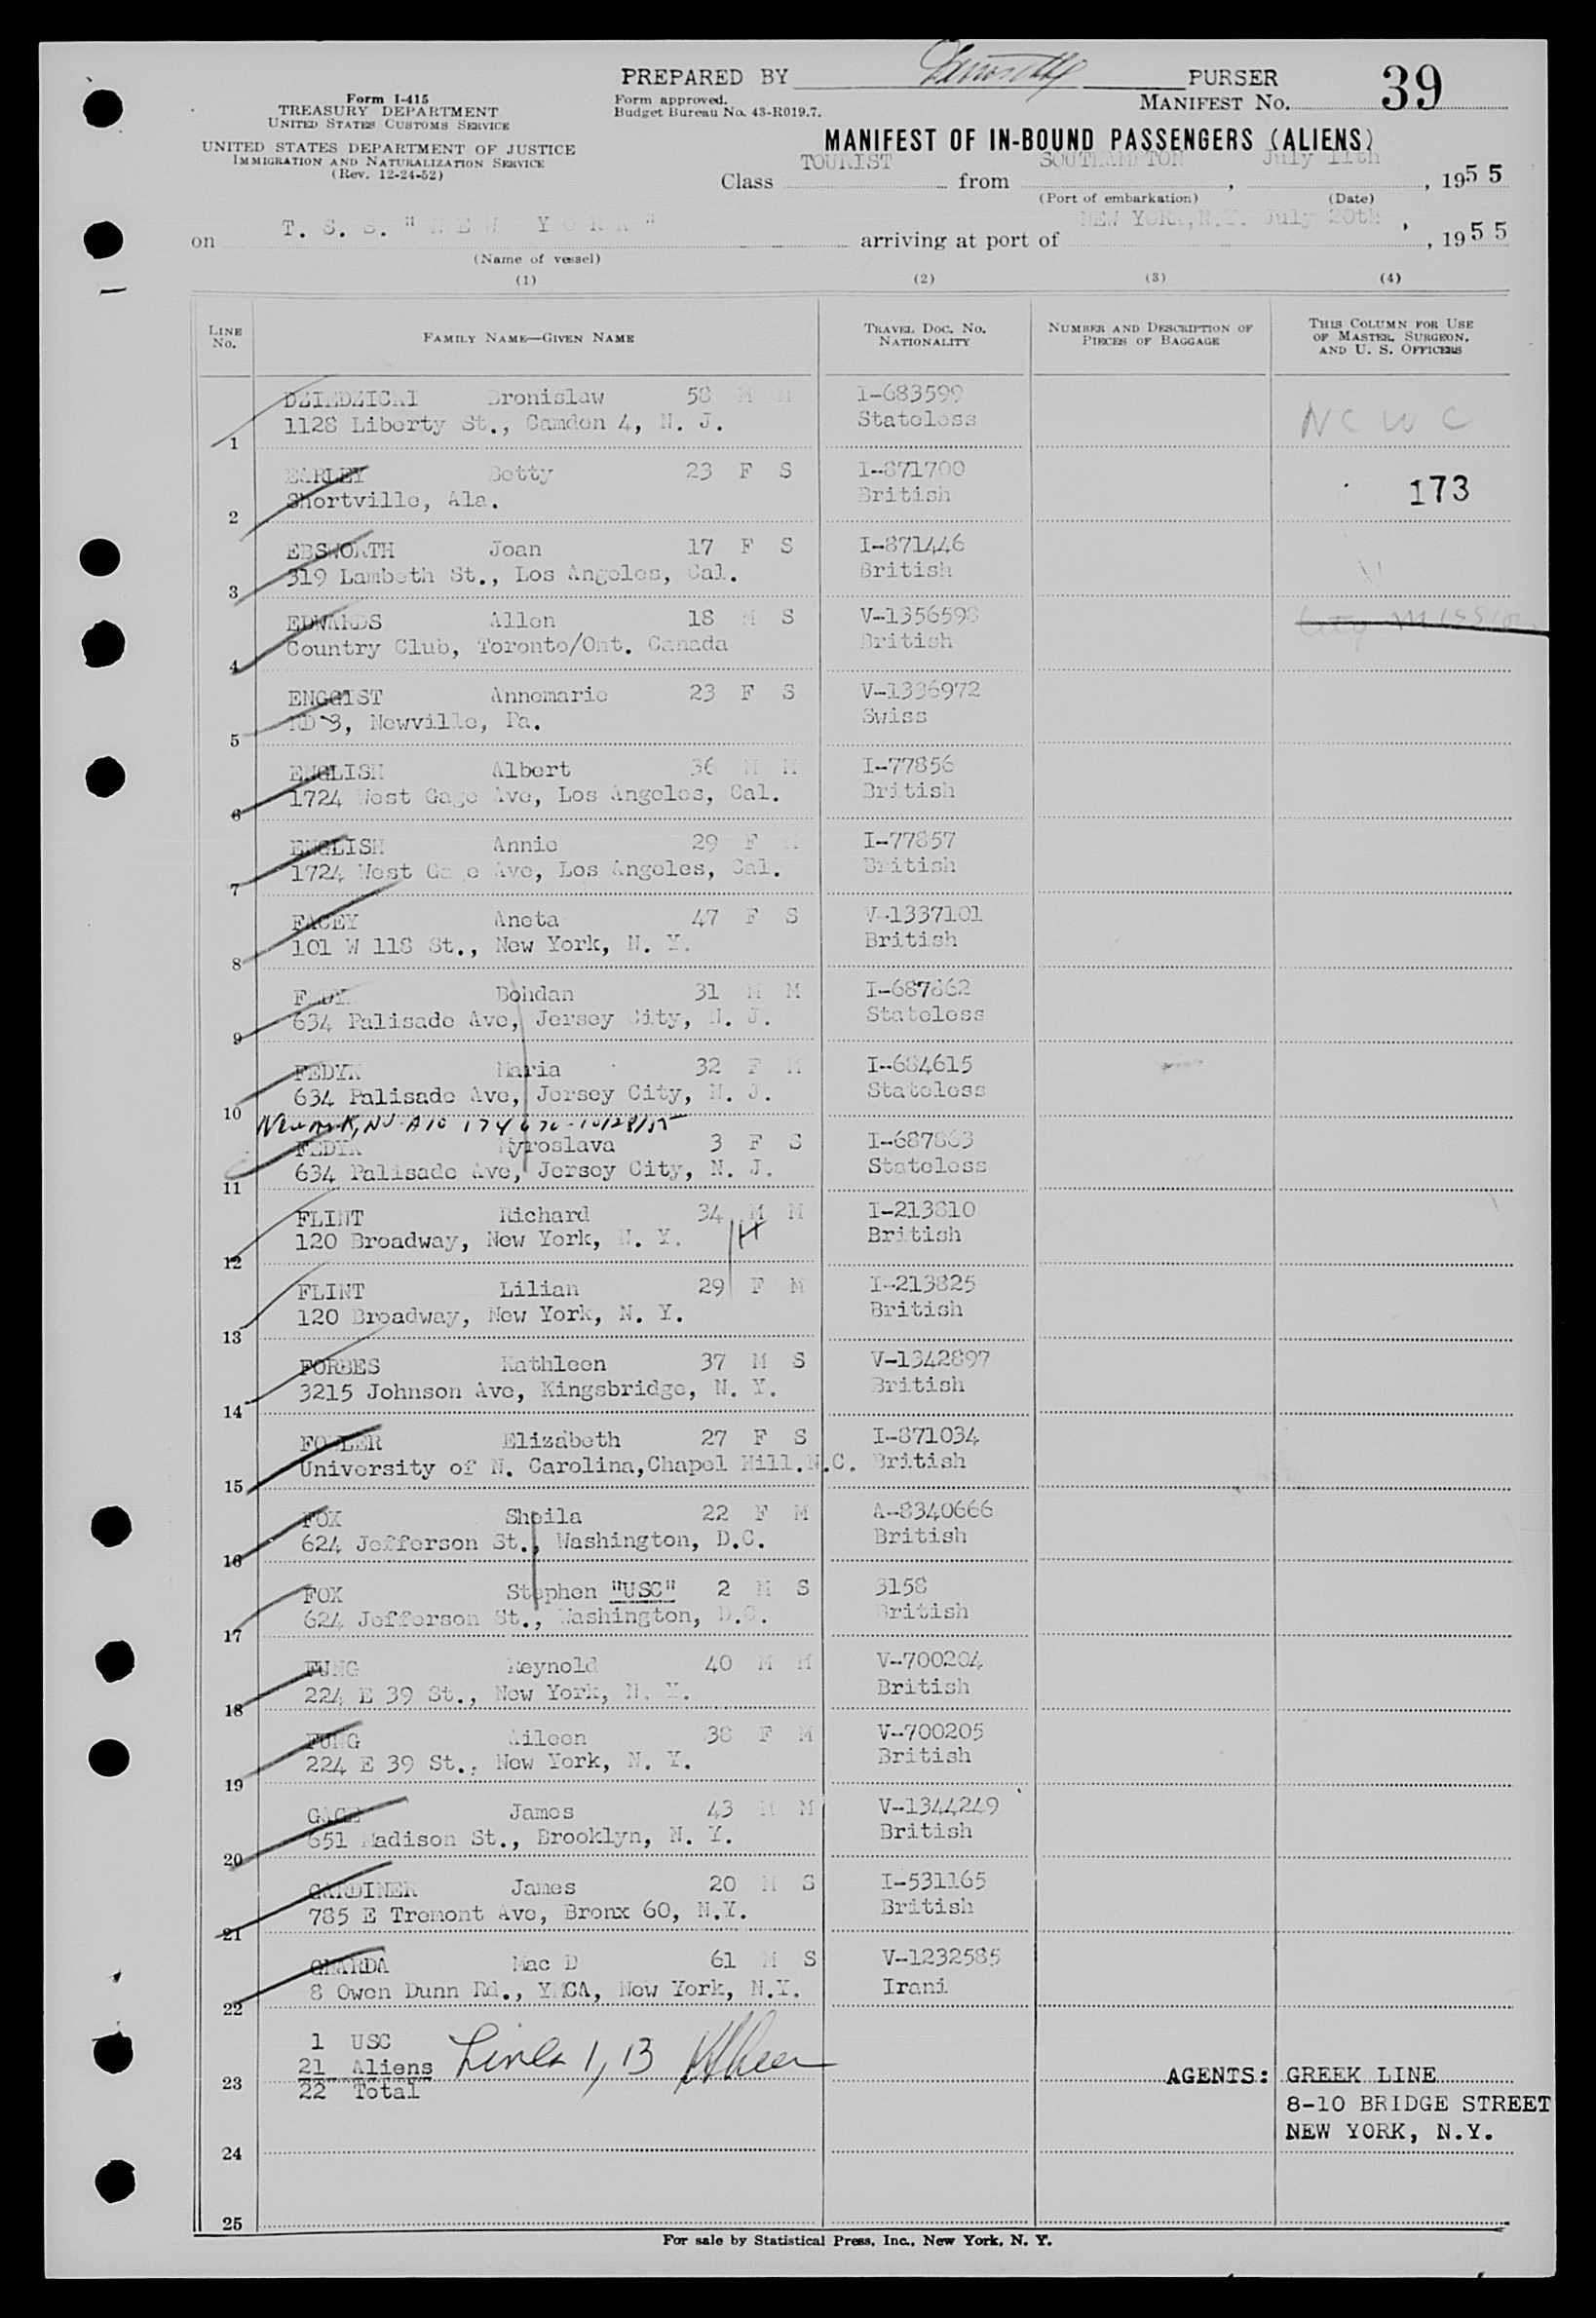 PREPARED BY PURSER
Form I-415
TREASURY DEPARTMENT
UNITED STATES CUSTOMS SERVICE
UNITED STATES DEPARTMENT OF JUSTICE
IMMIGRATION AND NATURALIZATION SERVICE
(Rev. 12-24-52)
Form approved.
Budget Bureau No. 43-R019.7.
MANIFEST No. 39
MANIFEST OF IN-BOUND PASSENGERS (ALIENS)
Class TOURIST from SOUTHAMPTON, July 11th, 1955
(Port of embarkation) (Date)
on T. S. S. "NEW YORK" arriving at port of NEW YORK, N.Y. July 20th, 1955
(Name of vessel)
(1) (2) (3) (4)
LINE No. FAMILY NAME—GIVEN NAME TRAVEL DOC. No. NATIONALITY NUMBER AND DESCRIPTION OF PIECES OF BAGGAGE THIS COLUMN FOR USE OF MASTER, SURGEON, AND U. S. OFFICERS
DZIEDZICKI Bronislaw 58 M M I-683599
1 1128 Liberty St., Camden 4, N. J. Stateless NCWC
EARLEY Betty 23 F S I-871700
2 Shortville, Ala. British 173
EBSWORTH Joan 17 F S I-871446
3 319 Lambeth St., Los Angeles, Cal. British
EDWARDS Allen 18 M S V-1356598 City Mission
4 Country Club, Toronto/Ont. Canada British
ENGGIST Annemarie 23 F S V-1336972
5 RD 3, Newville, Pa. Swiss
ENGLISH Albert 36 M M I-77856
6 1724 West Gage Ave, Los Angeles, Cal. British
ENGLISH Annie 29 F M I-77857
7 1724 West Gage Ave, Los Angeles, Cal. British
FACEY Aneta 47 F S V-1337101
8 101 W 118 St., New York, N. Y. British
FEDYK Bohdan 31 M M I-687862
9 634 Palisade Ave, Jersey City, N. J. Stateless
FEDYK Maria 32 F M I-684615
10 634 Palisade Ave, Jersey City, N. J. Stateless
Newark, NJ A10 174 670 - 10/28/55
FEDYK Myroslava 3 F S I-687863
11 634 Palisade Ave, Jersey City, N. J. Stateless
FLINT Richard 34 M M I-213810
12 120 Broadway, New York, N. Y. H British
FLINT Lilian 29 F M I-213825
13 120 Broadway, New York, N. Y. British
FORBES Kathleen 37 M S V-1342897
14 3215 Johnson Ave, Kingsbridge, N. Y. British
FOWLER Elizabeth 27 F S I-871034
15 University of N. Carolina, Chapel Hill.N.C. British
FOX Sheila 22 F M A-8340666
16 624 Jefferson St., Washington, D.C. British
FOX Stephen "USC" 2 M S 3158
17 624 Jefferson St., Washington, D.C. British
FUNG Reynold 40 M M V-700204
18 224 E 39 St., New York, N. Y. British
FUNG Aileen 38 F M V-700205
19 224 E 39 St., New York, N. Y. British
GAGE James 43 M M V-1344249
20 651 Madison St., Brooklyn, N. Y. British
GARDINER James 20 M S I-531165
21 785 E Tremont Ave, Bronx 60, N.Y. British
GHARDA Mac D 61 M S V-1232585
22 8 Owen Dunn Rd., YMCA, New York, N.Y. Irani
1 USC
21 Aliens Lines 1, 13
23 22 Total
AGENTS: GREEK LINE
8-10 BRIDGE STREET
NEW YORK, N.Y.
24
25
For sale by Statistical Press, Inc., New York, N. Y.